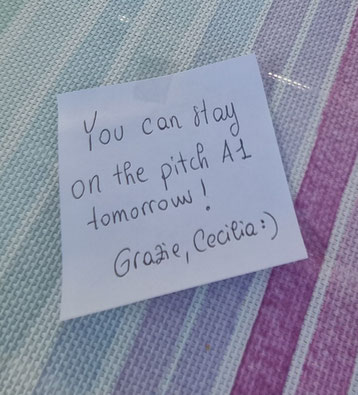 You can stay
on the pitch A1
tomorrow!
Grazie, Cecilia:)